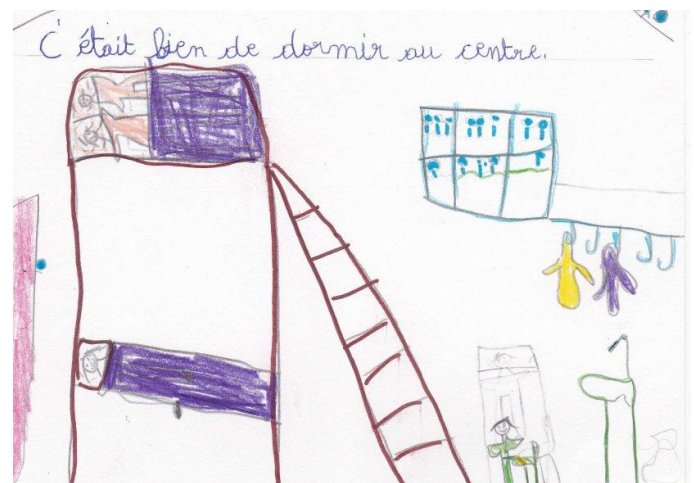 C'était bien de dormir au centre.